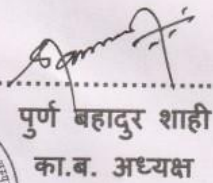 पुर्ण बहादुर शाही
का.ब. अध्यक्ष